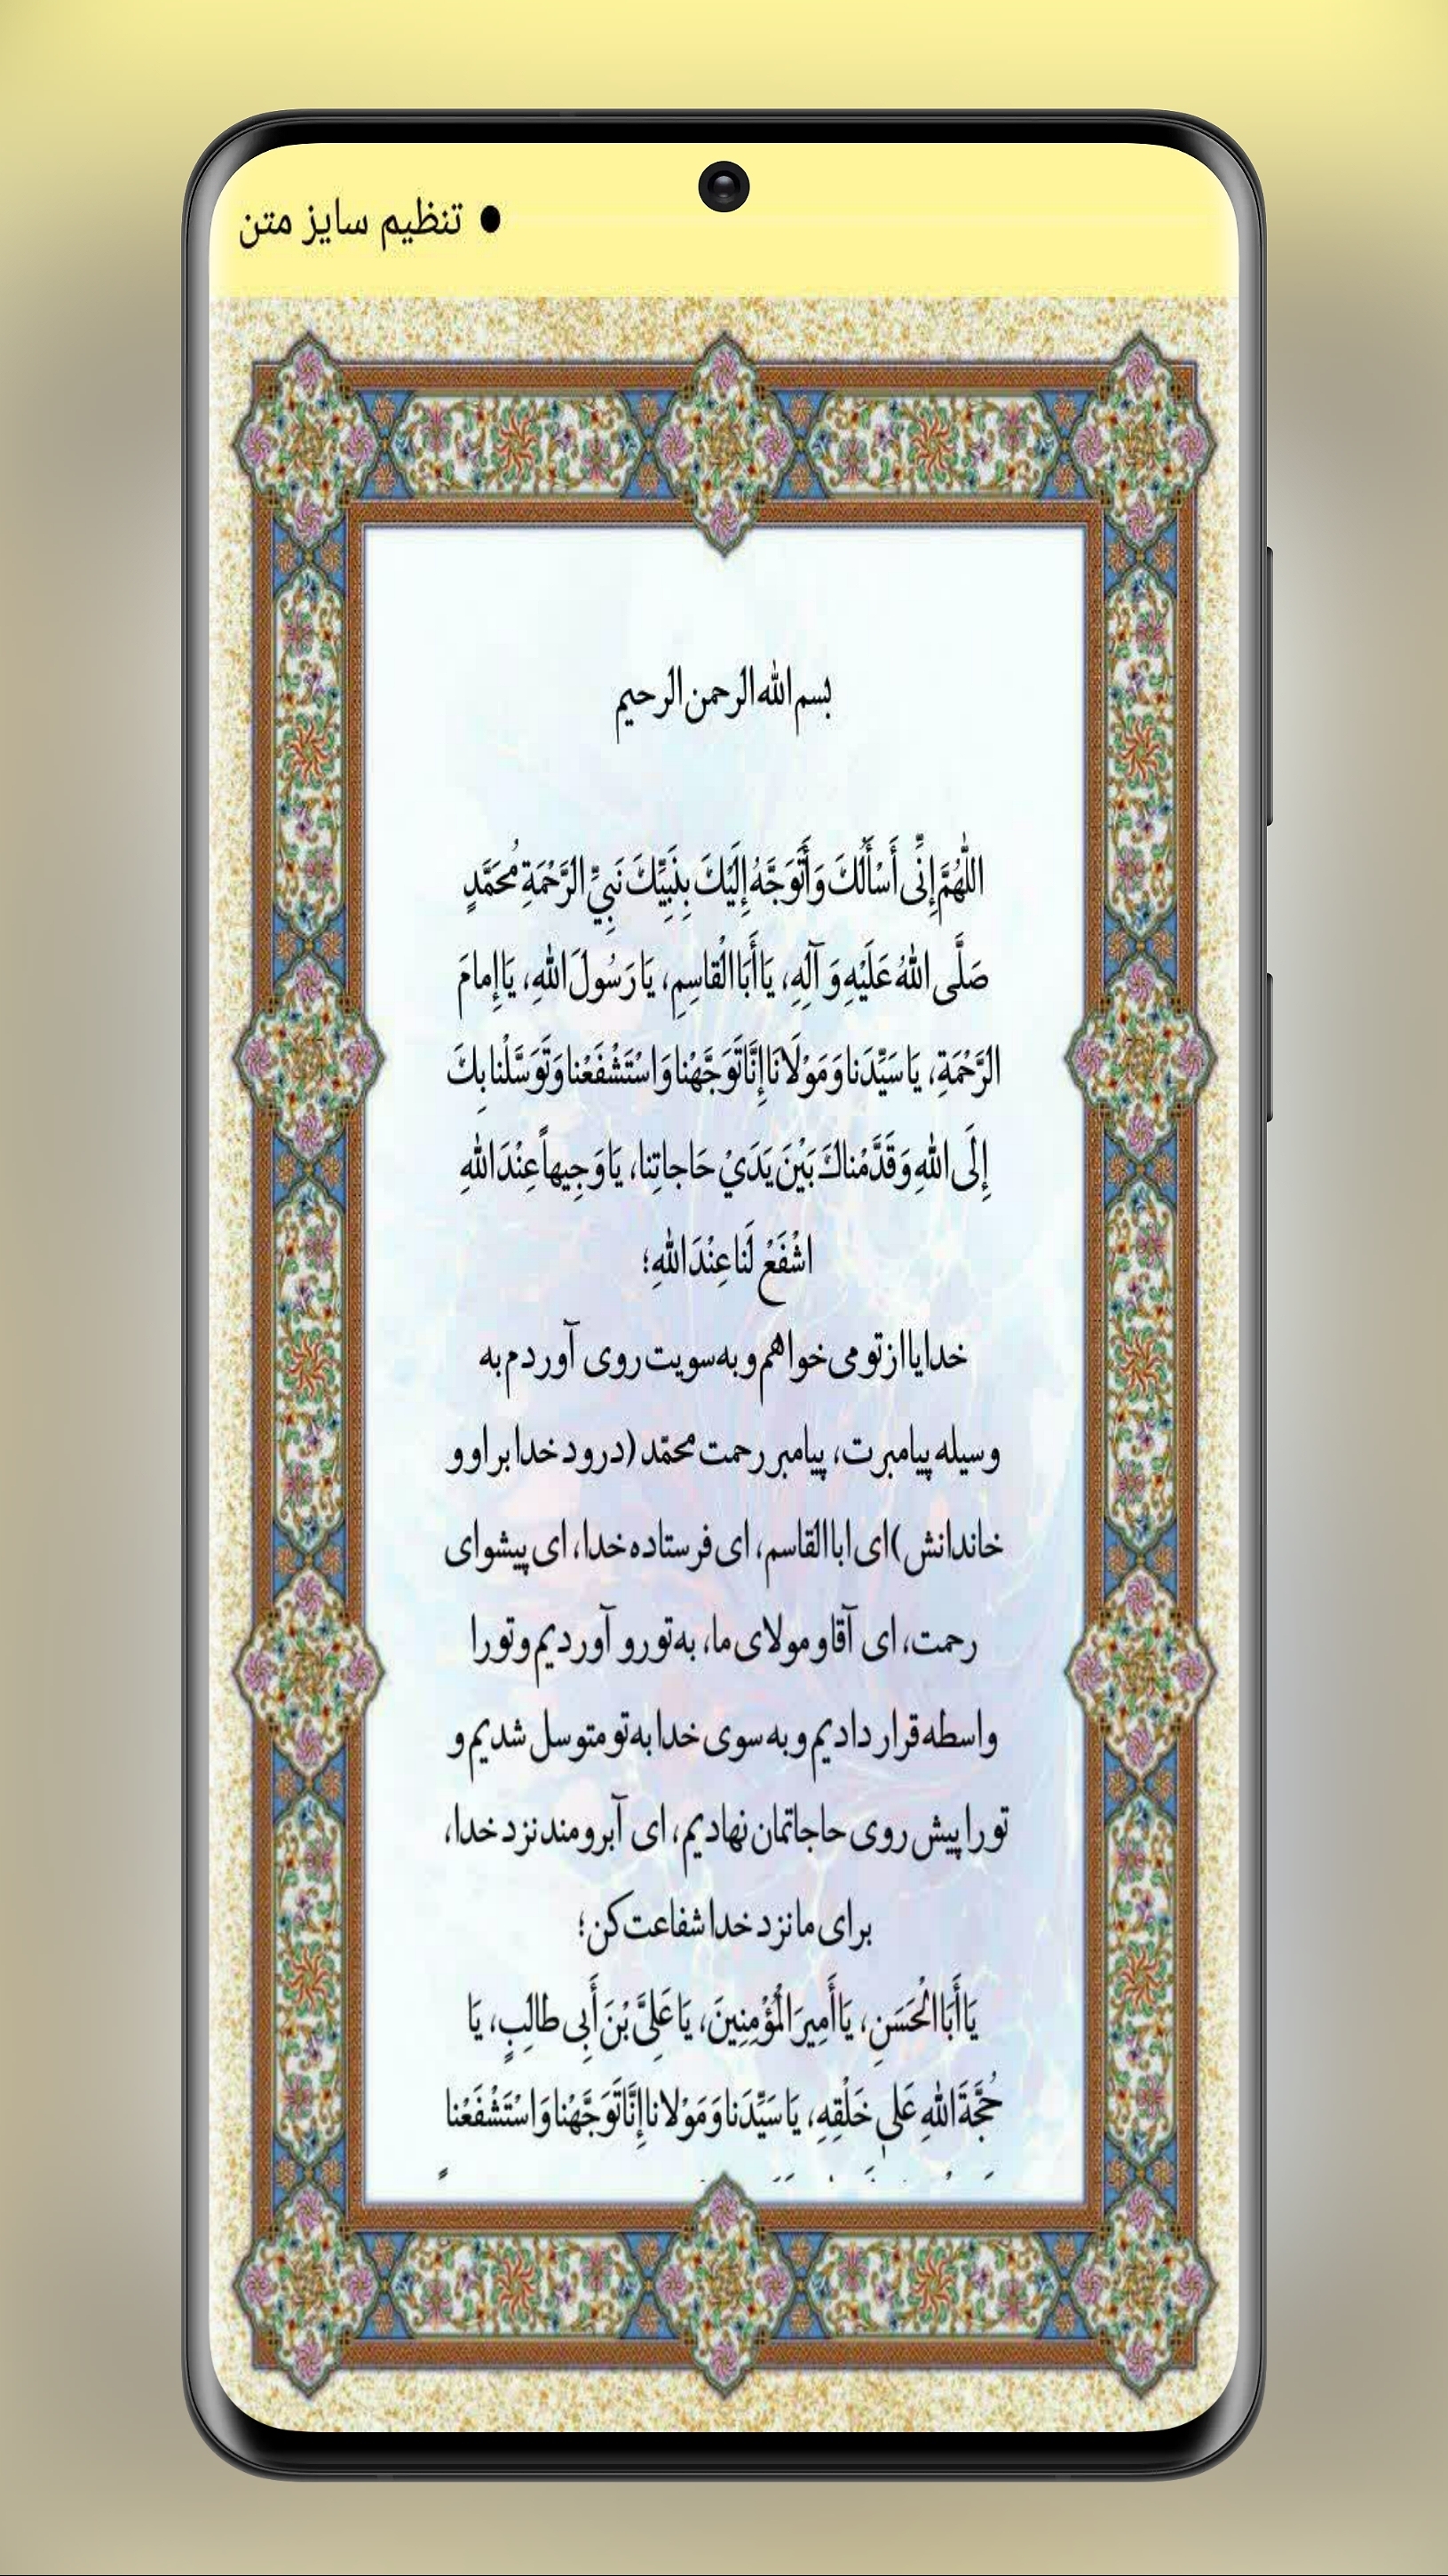 تنظیم سایز متن ●
بسم الله الرحمن الرحیم
اللّٰهُمَّ إِنِّی أَسْأَلُكَ وَأَتَوَجَّهُ إِلَیْكَ بِنَبِیِّكَ نَبِیِّ الرَّحْمَةِ مُحَمَّدٍ
صَلَّی اللّٰهُ عَلَیْهِ وَ آلِهِ، یَا أَبَا الْقاسِمِ، یَا رَسُولَ اللّٰهِ، یَا إِمامَ
الرَّحْمَةِ، یَا سَیِّدَنا وَمَوْلَانَا إِنَّا تَوَجَّهْنا وَاسْتَشْفَعْنا وَتَوَسَّلْنا بِكَ
إِلَی اللّٰهِ وَقَدَّمْناكَ بَیْنَ یَدَيْ حَاجاتِنا، یَا وَجِیهاً عِنْدَ اللّٰهِ
اشْفَعْ لَنا عِنْدَ اللّٰهِ؛
خدایا از تو می خواهم و به سویت روی آوردم به
وسیله پیامبرت، پیامبر رحمت محمّد (درود خدا بر او و
خاندانش) ای ابا القاسم، ای فرستاده خدا، ای پیشوای
رحمت، ای آقا و مولای ما، به تو رو آوردیم و تو را
واسطه قرار دادیم و به سوی خدا به تو متوسل شدیم و
تو را پیش روی حاجاتمان نهادیم، ای آبرومند نزد خدا،
برای ما نزد خدا شفاعت کن؛
یَا أَبَا الْحَسَنِ، یَا أَمِیرَ الْمُؤْمِنِینَ، یَا عَلِیَّ بْنَ أَبِی طالِبٍ، یَا
حُجَّةَ اللّٰهِ عَلیٰ خَلْقِهِ، یَا سَیِّدَنا وَمَوْلانا إِنَّا تَوَجَّهْنا وَاسْتَشْفَعْنا